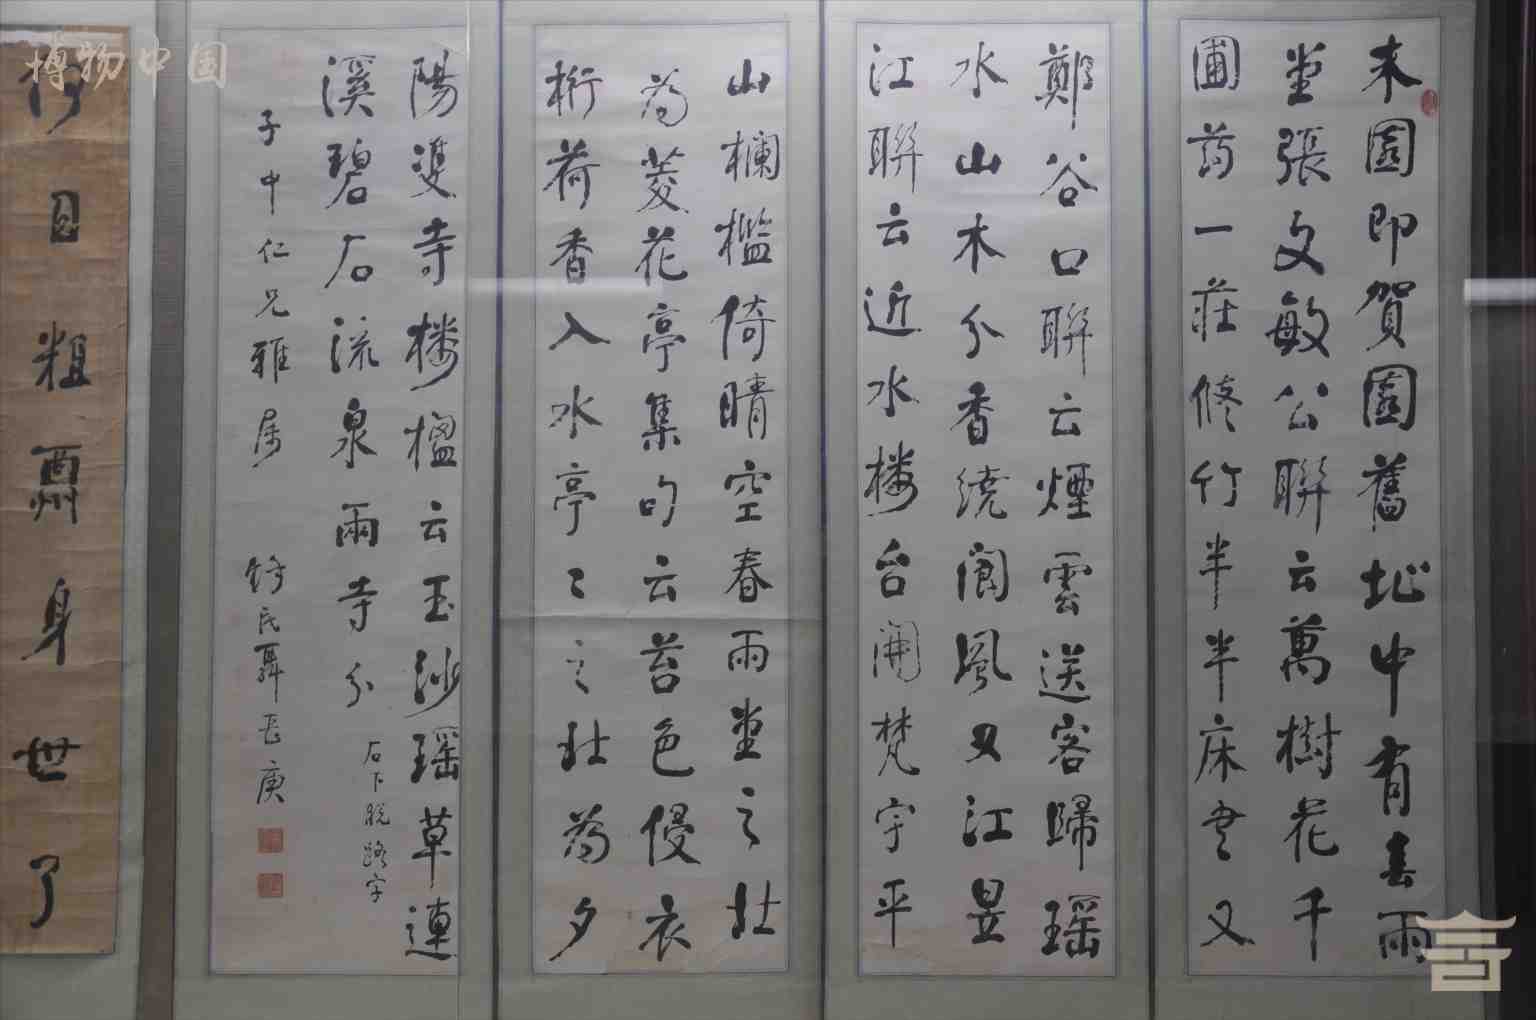 博物中国
東園即賀園舊址中有春雨
堂張文敏公聯云萬樹花千
圃葯一莊修竹半半床書又
鄭谷口聯云煙雲送客歸瑶
水山木分香繞閬風又江昱
江聯云近水楼台開梵宇平
山欄檻倚晴空春雨堂之北
為菱花亭集句云苔色侵衣
桁荷香入水亭〻之北為夕
陽雙寺楼楹云玉沙瑶草連
溪碧石流泉兩寺分
石下脱路字
子中仁兄雅属 舒民聶長庚
何日粗酬身世了